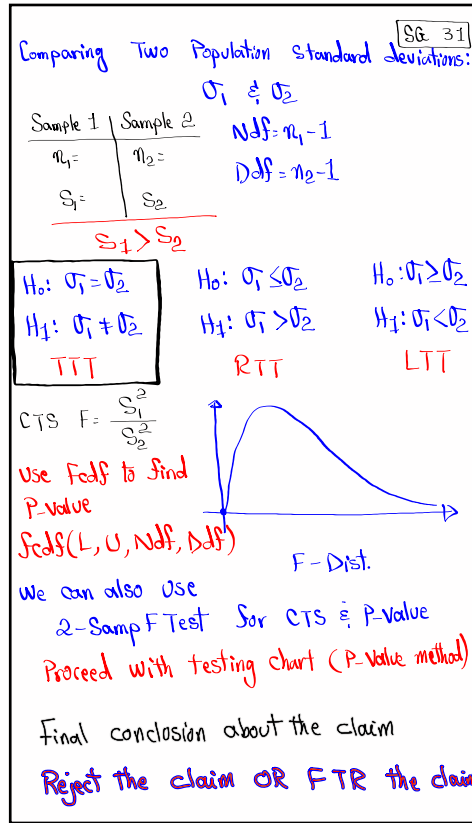 SG 31
Comparing Two Population Standard deviations:
σ₁ & σ₂
Sample 1 | Sample 2
n₁= | n₂=
S₁= | S₂
Ndf = n₁-1
Ddf = n₂-1
S₁ > S₂
H₀: σ₁ = σ₂
H₁: σ₁ ≠ σ₂
TTT
H₀: σ₁ ≤ σ₂
H₁: σ₁ > σ₂
RTT
H₀: σ₁ ≥ σ₂
H₁: σ₁ < σ₂
LTT
CTS F = S₁²/S₂²
Use Fcdf to find
P-value
fcdf(L, U, Ndf, Ddf)
F-Dist.
We can also use
2-Samp F Test for CTS & P-Value
Proceed with testing chart (P-Value method)
Final conclusion about the claim
Reject the claim OR FTR the claim